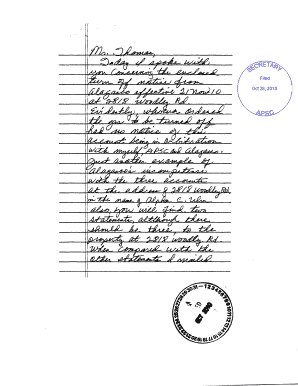 Mr. Thomas,
Today I spoke with
you concerning the enclosed
turn off notice from
Alagasco effective 21 Nov 10
at 2818 Woodley Rd.
Evidently, whoever ordered
the gas to be turned off
had no notice of this
account being in arbitration
with myself, APSC and Alagasco.
Just another example of
Alagasco's incompetence
with the three accounts
at the address of 2818 Woodley Rd.
in the name of C.
Also, you will find two
statements, although there
should be three, to the
property at 2818 Woodley Rd.
When compared with the
other statements I mailed
SECRETARY
Filed
Oct 28, 2010
APSC
OCT 2010